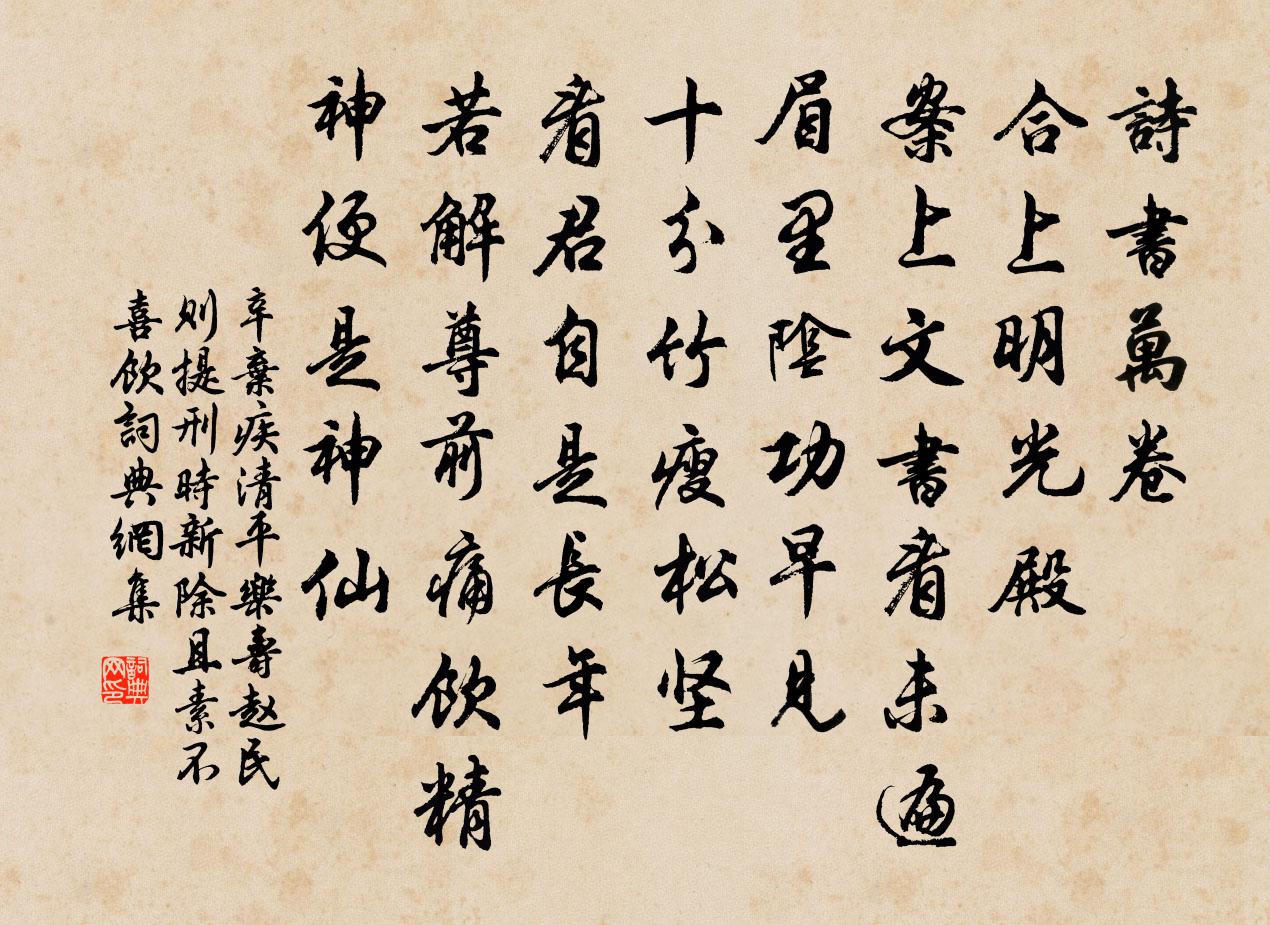 詩書萬卷
合上明光殿
案上文書看未遍
眉里陰功早見
十分竹瘦松坚
看君自是長年
若解尊前痛飲精
神便是神仙
辛棄疾清平樂壽赵民
则提刑時新除且素不
喜飲詞典網集
詞典网印